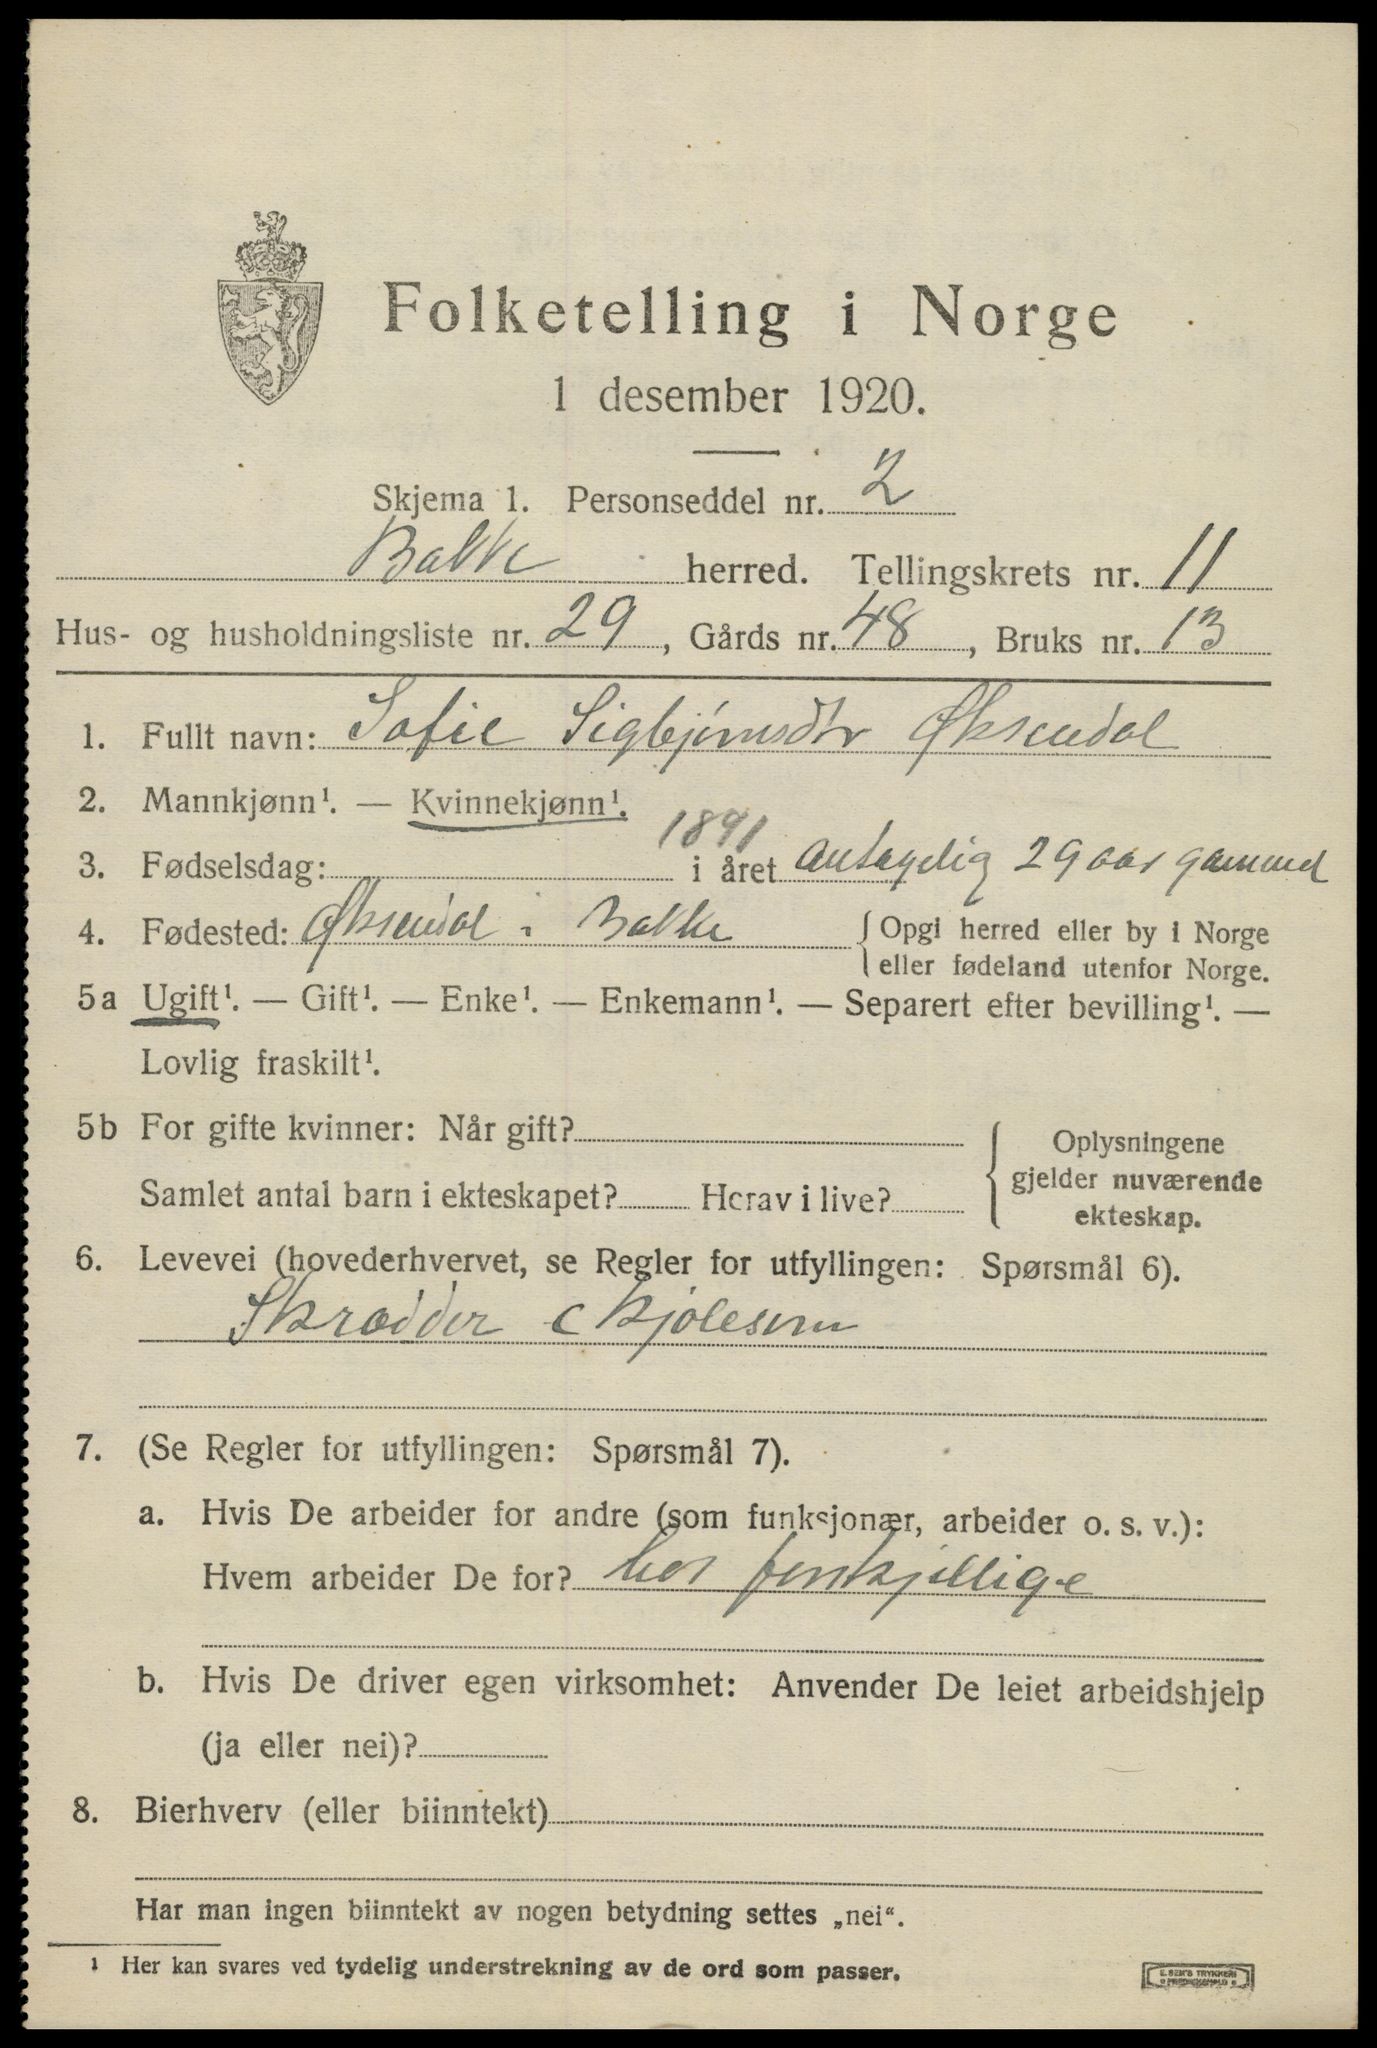 Folketelling i Norge
1 desember 1920.
Skjema 1. Personseddel nr. 2
Bakke herred. Tellingskrets nr. 11
Hus- og husholdningsliste nr. 29, Gårds nr. 48, Bruks nr. 13
1. Fullt navn: Sofie Sigbjørnsdtr Øksendal
2. Mannkjønn¹. — Kvinnekjønn¹.
1891
3. Fødselsdag: i året antagelig 29 aar gammel
4. Fødested: Øksendal i Bakke { Opgi herred eller by i Norge
eller fødeland utenfor Norge.
5a Ugift¹. — Gift¹. — Enke¹. — Enkemann¹. — Separert efter bevilling¹. —
Lovlig fraskilt¹.
5b For gifte kvinner: Når gift? { Oplysningene
gjelder nuværende
Samlet antal barn i ekteskapet? Herav i live?
ekteskap.
6. Levevei (hovederhvervet, se Regler for utfyllingen: Spørsmål 6).
Skrædder c kjolesøm
7. (Se Regler for utfyllingen: Spørsmål 7).
a. Hvis De arbeider for andre (som funksjonær, arbeider o. s. v.):
Hvem arbeider De for? hos forskjellige
b. Hvis De driver egen virksomhet: Anvender De leiet arbeidshjelp
(ja eller nei)?
8. Bierhverv (eller biinntekt)
Har man ingen biinntekt av nogen betydning settes „nei“.
¹ Her kan svares ved tydelig understrekning av de ord som passer.
E. SEM'S TRYKKERI
FREDRIKSHALD